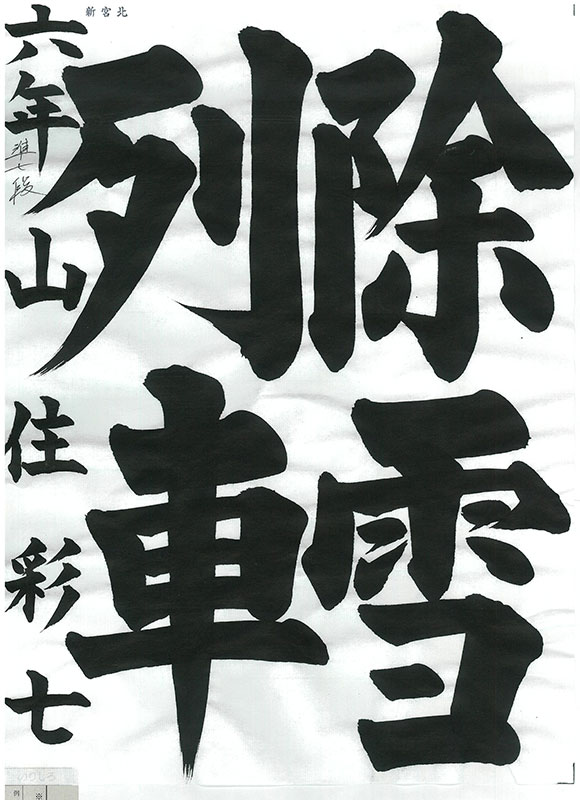 除雪
列車
六年山住彩七
準七段
北宮新
例
※